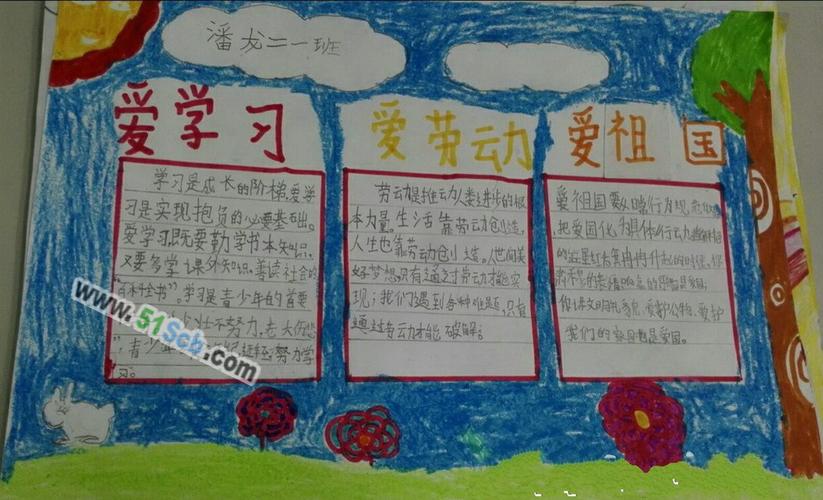 潘龙二一班
爱学习
学习是成长的阶梯,爱学
习是实现抱负的必要基础。
爱学习,既要勤学书本知识,
又要多学课外知识。善读社会的
"百科全书"。学习是青少年的首要
少壮不努力,老大伤悲
",青少年
努力学
习。
爱劳动
劳动是推动人类进步的根
本力量。生活靠劳动创造,
人生也靠劳动创造。人世间美
好梦想只有通过劳动才能实
现;我们遇到各种难题,只有
通过劳动才能破解;
爱祖国
爱祖国要从日常行为规
把爱国化为具体行动
冉冉升起的时候,你
你讲文明礼貌,爱护公物,爱护
我们的家园就是爱国。
www.51Scb.com